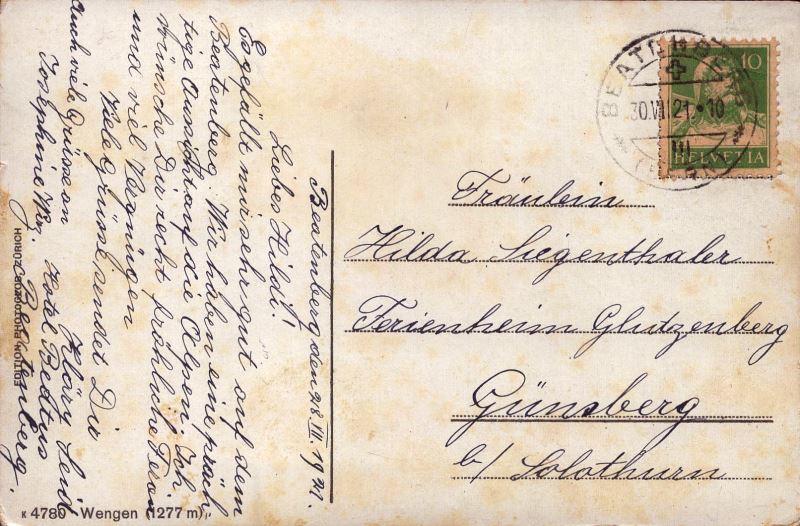 Beatenberg den 28. VII. 1921.
Liebes Hildi!
Es gefällt mir sehr gut auf dem
Beatenberg. Wir haben eine präch
tige Aussicht auf die Alpen. Ich
wünsche Dir recht fröhliche Ferien
und viel Vergnügen
Viele Grüsse sendet Dir
Kläry
Auch viele Grüsse an
Josephine
Hotel
Beatenberg.
EDITION PHOTOGLOB ZÜRICH
K 4780 - Wengen (1277 m)
BEATENBERG
30.VII.21.-10
III
10
HELVETIA
Fräulein
Hilda Siegenthaler
Ferienheim Glutzenberg
Günsberg
b/ Solothurn